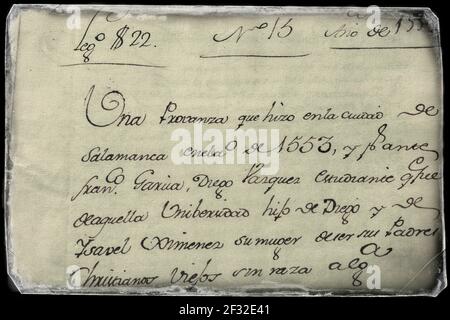 Leg.º 822. Nº 15 Año de 155
Una Provanza que hizo en la ciudad de
Salamanca en el aº de 1553, y pr ante
Fran.co Garcia, Diego Vazquez estudiante qe fue
de aquella Unibersidad hijo de Diego y de
Ysavel Ximenez su muger de ser sus Padres
Chricianos viejos sin raza alga
alamy
Image ID: 2F32E41
www.alamy.com